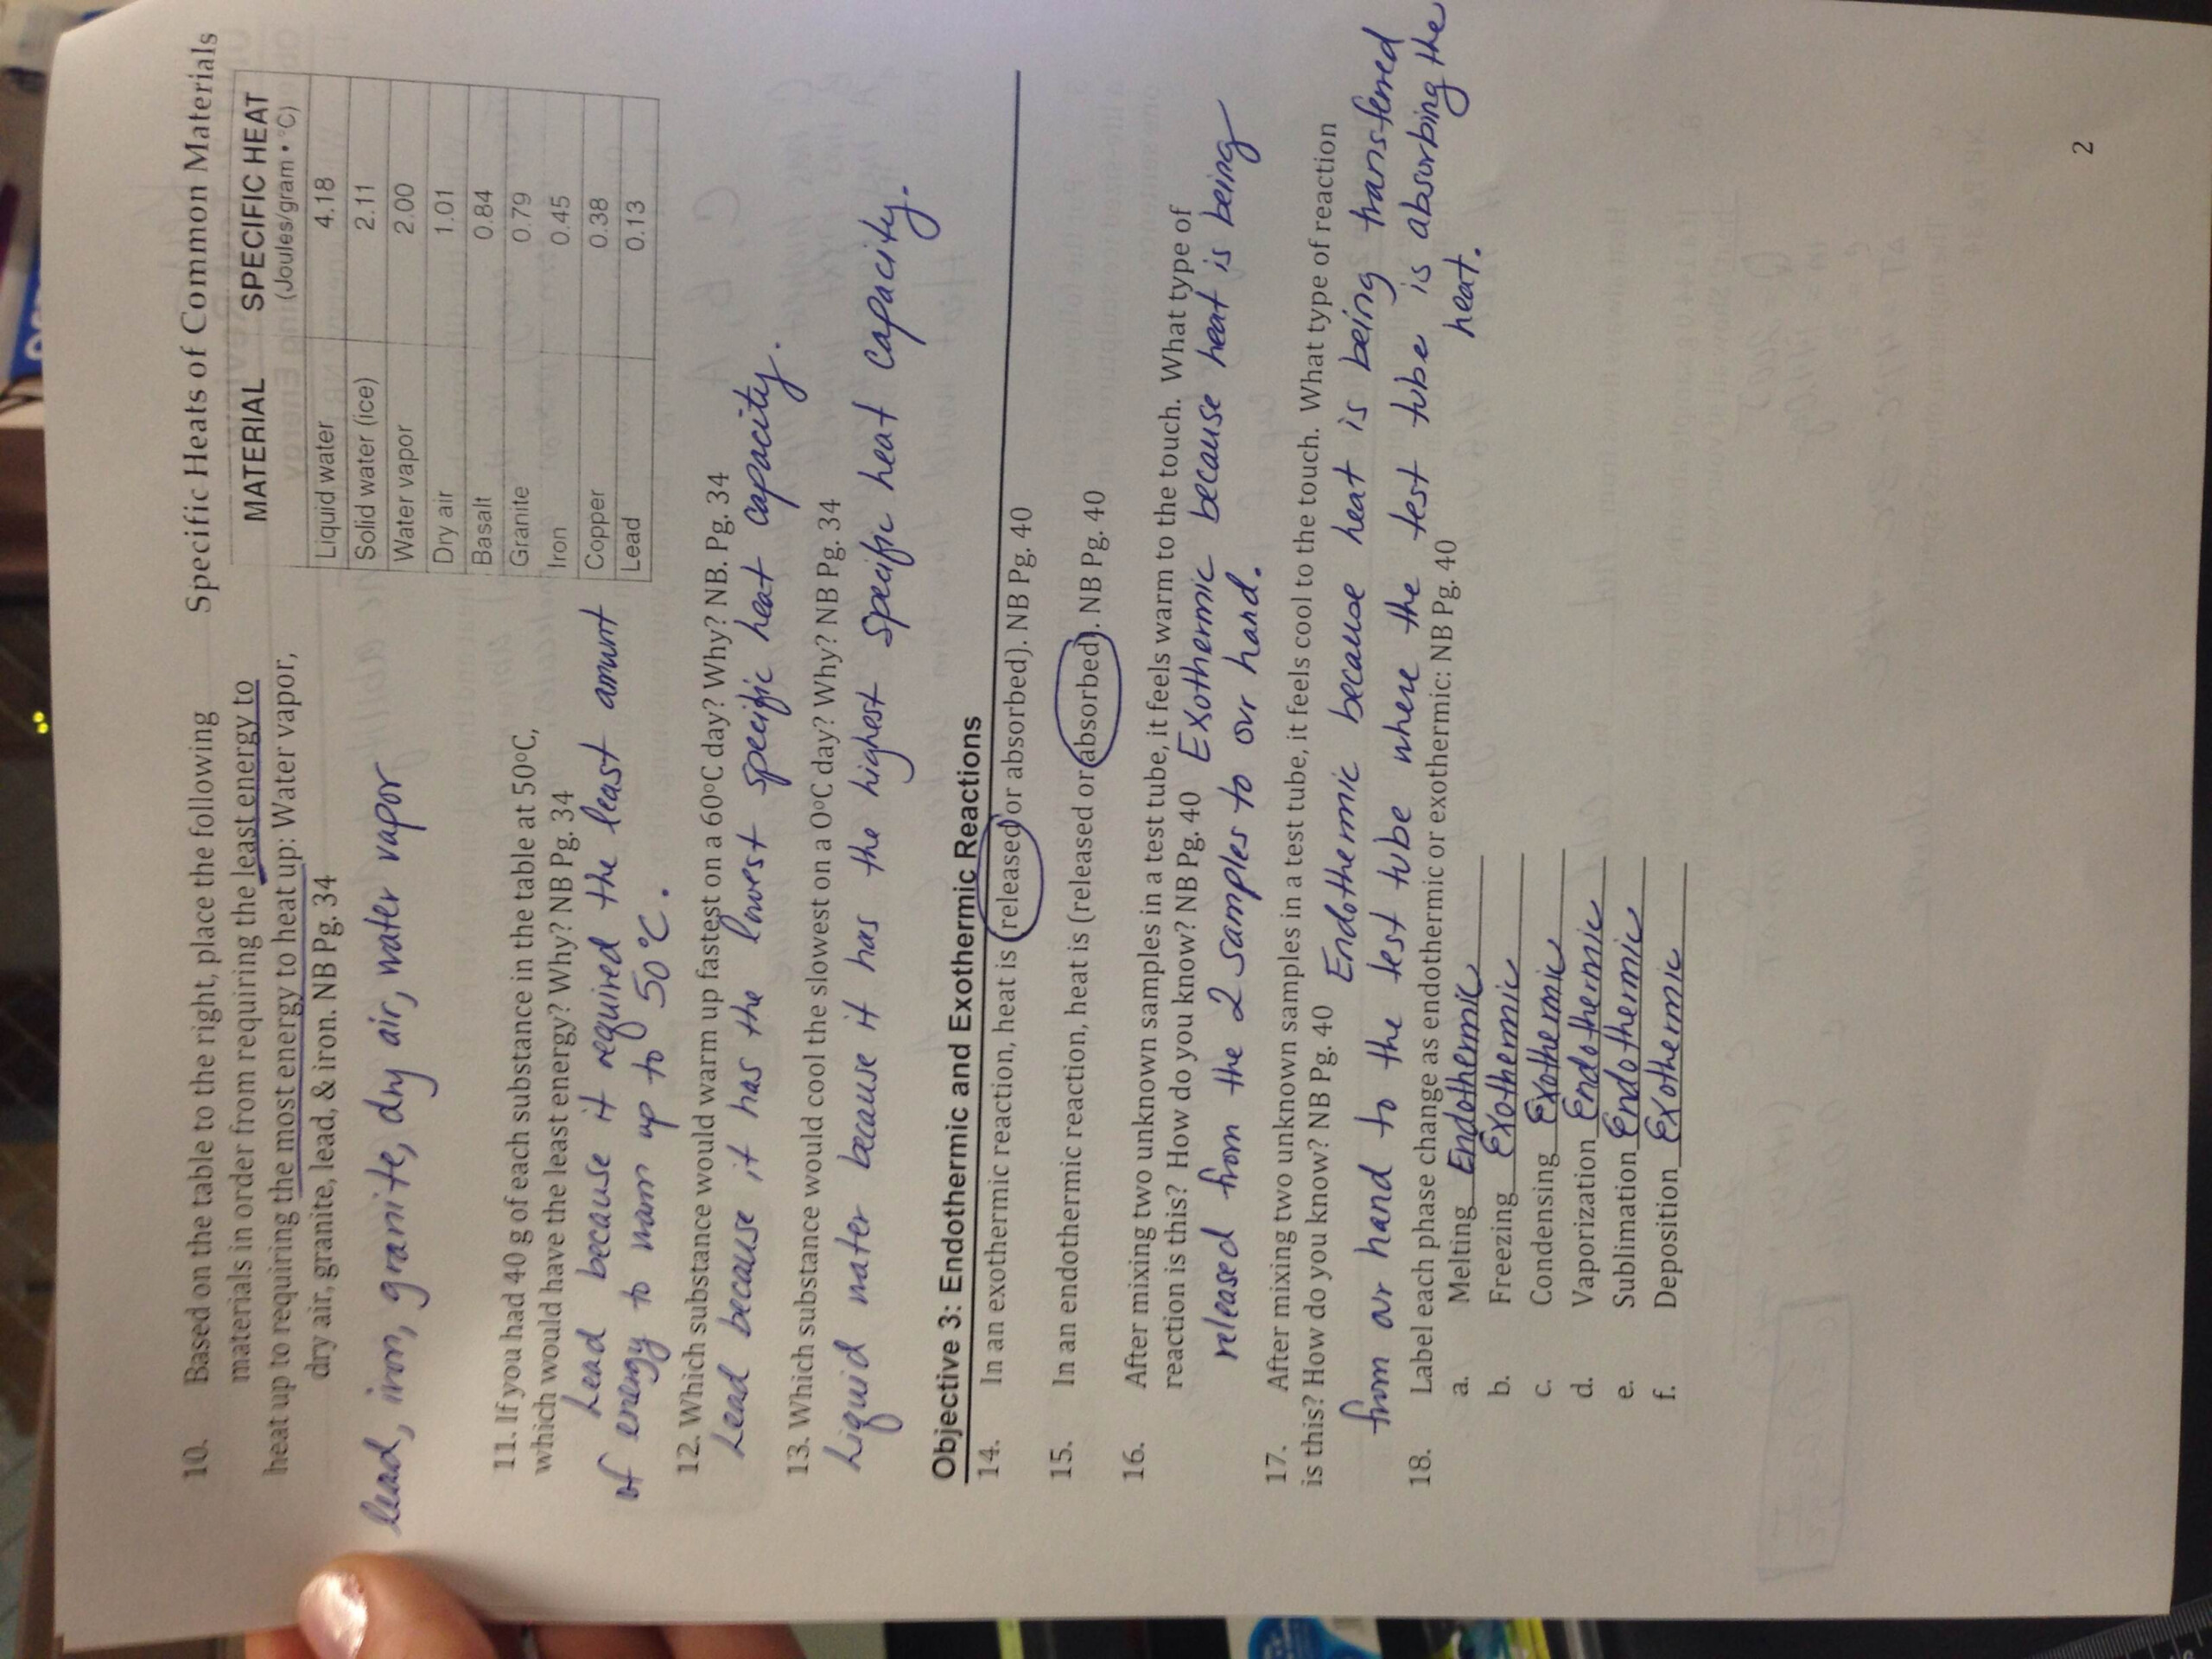 10. Based on the table to the right, place the following
materials in order from requiring the least energy to
heat up to requiring the most energy to heat up: Water vapor,
dry air, granite, lead, & iron. NB Pg. 34
lead, iron, granite, dry air, water vapor
Specific Heats of Common Materials
MATERIAL SPECIFIC HEAT
(Joules/gram • °C)
Liquid water 4.18
Solid water (ice) 2.11
Water vapor 2.00
Dry air 1.01
Basalt 0.84
Granite 0.79
Iron 0.45
Copper 0.38
Lead 0.13
11. If you had 40 g of each substance in the table at 50°C,
which would have the least energy? Why? NB Pg. 34
Lead because it required the least amount
of energy to warm up to 50°C.
12. Which substance would warm up fastest on a 60°C day? Why? NB. Pg. 34
Lead because it has the lowest specific heat capacity.
13. Which substance would cool the slowest on a 0°C day? Why? NB Pg. 34
Liquid water because it has the highest specific heat capacity.
Objective 3: Endothermic and Exothermic Reactions
14. In an exothermic reaction, heat is (released or absorbed). NB Pg. 40
15. In an endothermic reaction, heat is (released or absorbed). NB Pg. 40
16. After mixing two unknown samples in a test tube, it feels warm to the touch. What type of
reaction is this? How do you know? NB Pg. 40 Exothermic because heat is being
released from the 2 samples to our hand.
17. After mixing two unknown samples in a test tube, it feels cool to the touch. What type of reaction
is this? How do you know? NB Pg. 40 Endothermic because heat is being transferred
from our hand to the test tube where the test tube is absorbing the
heat.
18. Label each phase change as endothermic or exothermic: NB Pg. 40
a. Melting Endothermic
b. Freezing Exothermic
c. Condensing Exothermic
d. Vaporization Endothermic
e. Sublimation Endothermic
f. Deposition Exothermic
2